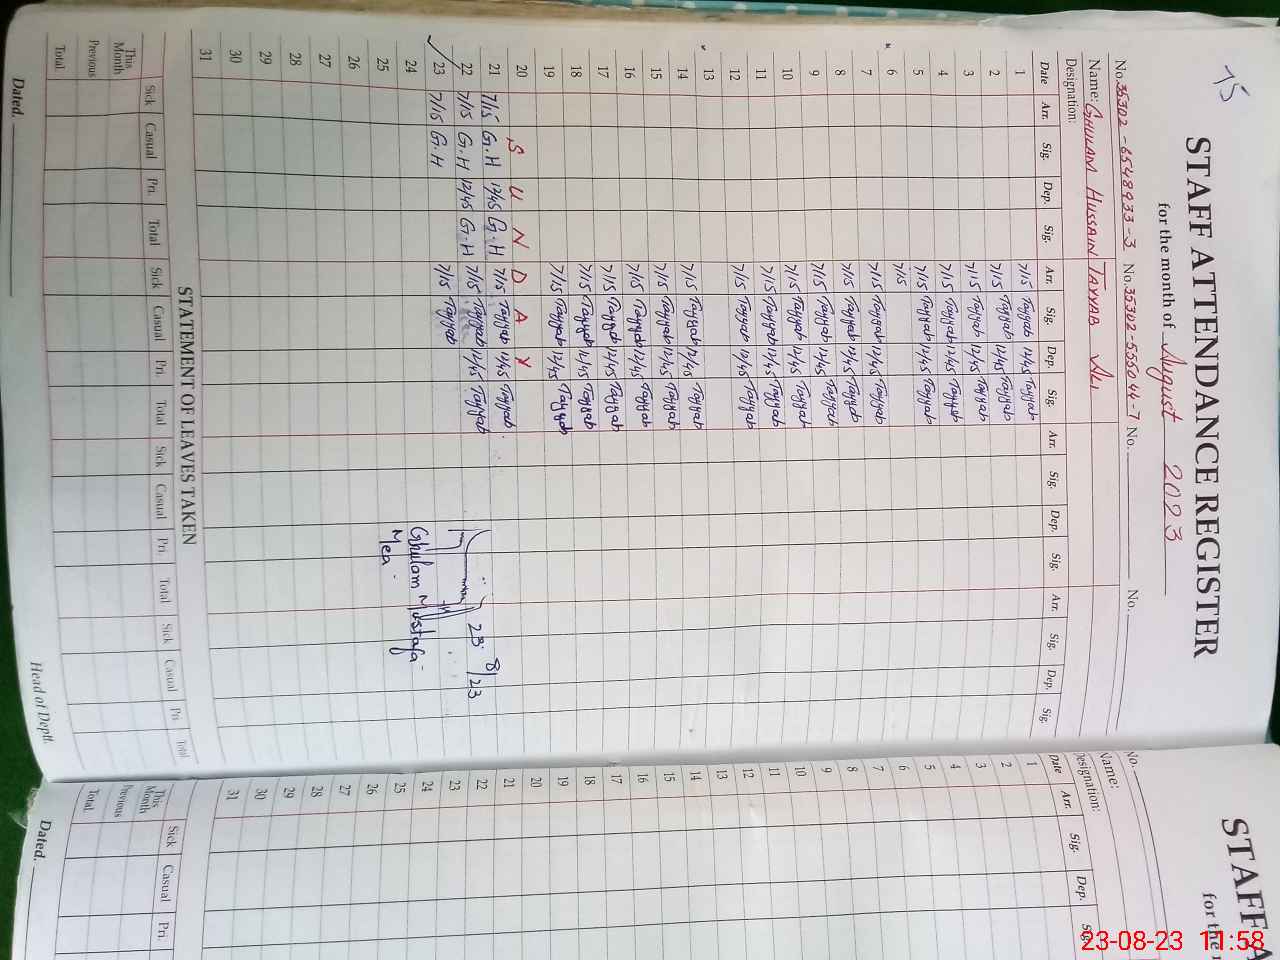 75
STAFF ATTENDANCE REGISTER
for the month of August 2023
No. 35302-6548933-3 No. 35302-555044-7 No. No.
Name: GHULAM HUSSAIN TAYYAB ALI
Designation:
Date Arr. Sig. Dep. Sig. Arr. Sig. Dep. Sig. Arr. Sig. Dep. Sig. Arr. Sig. Dep. Sig.
1 7/15 Tayyab 12/45 Tayyab
2 7/15 Tayyab 12/45 Tayyab
3 7/15 Tayyab 12/45 Tayyab
4 7/15 Tayyab 12/45 Tayyab
5 7/15 Tayyab 12/45 Tayyab
6 7/15
7 7/15 Tayyab 12/45 Tayyab
8 7/15 Tayyab 12/45 Tayyab
9 7/15 Tayyab 12/45 Tayyab
10 7/15 Tayyab 12/45 Tayyab
11 7/15 Tayyab 12/45 Tayyab
12 7/15 Tayyab 12/45 Tayyab
13
14 7/15 Tayyab 12/45 Tayyab
15 7/15 Tayyab 12/45 Tayyab
16 7/15 Tayyab 12/45 Tayyab
17 7/15 Tayyab 12/45 Tayyab
18 7/15 Tayyab 12/45 Tayyab
19 7/15 Tayyab 12/45 Tayyab
20 S U N D A Y
21 7/15 G.H 12/45 G.H 7/15 Tayyab 12/45 Tayyab
22 7/15 G.H 12/45 G.H 7/15 Tayyab 12/45 Tayyab
23 7/15 G.H 7/15 Tayyab
23 8/23
24
Ghulam Mustafa
25
Mea
26
27
28
29
30
31
STATEMENT OF LEAVES TAKEN
Sick Casual Pri. Total Sick Casual Pri. Total Sick Casual Pri. Total Sick Casual Pri Total
This Month
Previous
Total
Dated. Head of Deptt.
STAFF A
for the
No.
Name:
Designation:
Date Arr. Sig. Dep. Sig.
1
2
3
4
5
6
7
8
9
10
11
12
13
14
15
16
17
18
19
20
21
22
23
24
25
26
27
28
29
30
31
Sick Casual Pri.
This Month
Previous
Total
Dated.
23-08-23 11:58